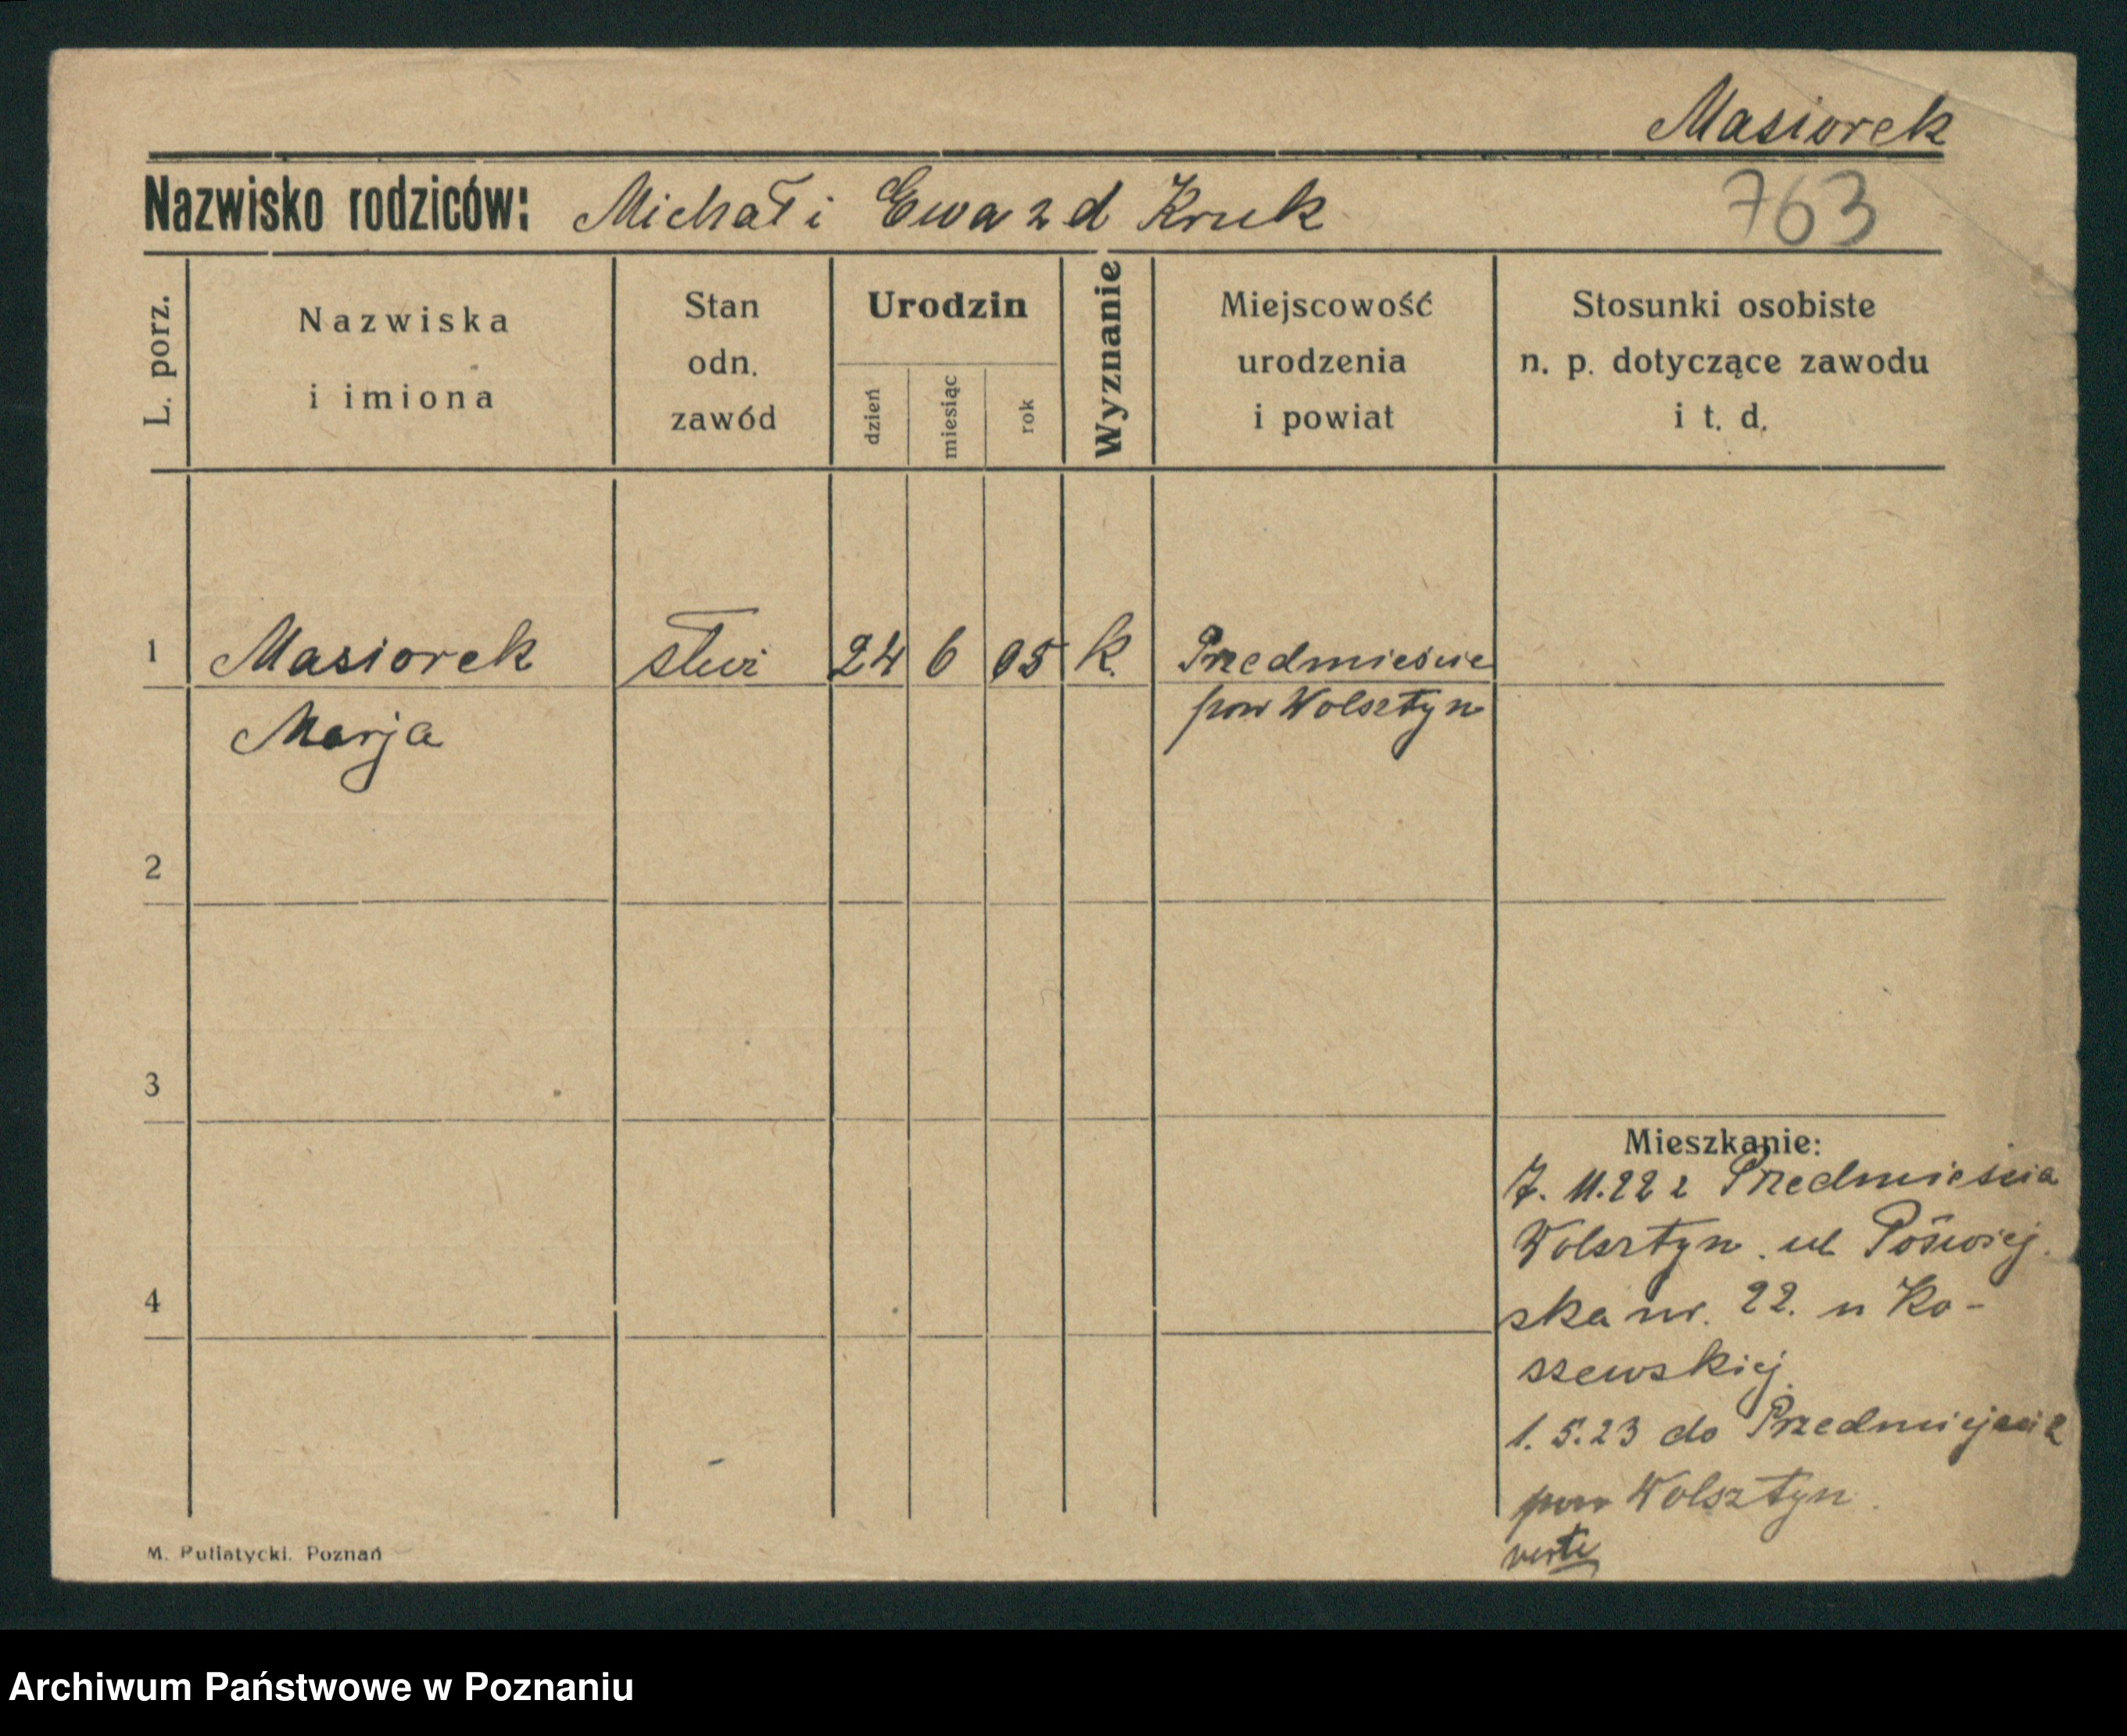 Masiorek
Nazwisko rodziców: Michał i Ewa z d Kruk
763
L. porz.
Nazwiska
i imiona
Stan
odn.
zawód
Urodzin
dzień
miesiąc
rok
Wyznanie
Miejscowość
urodzenia
i powiat
Stosunki osobiste
n. p. dotyczące zawodu
i t. d.
1 Masiorek 24 6 05 k. Przedmieście
Marja pow Wolsztyn
2
3
4
Mieszkanie:
7. 11.22 z Przedmieścia
Wolsztyn. ul
ska nr. 22. u Ko-
szewskiej
1. 5.23 do
pow Wolsztyn.
verte
M. Putiatycki. Poznań
Archiwum Państwowe w Poznaniu